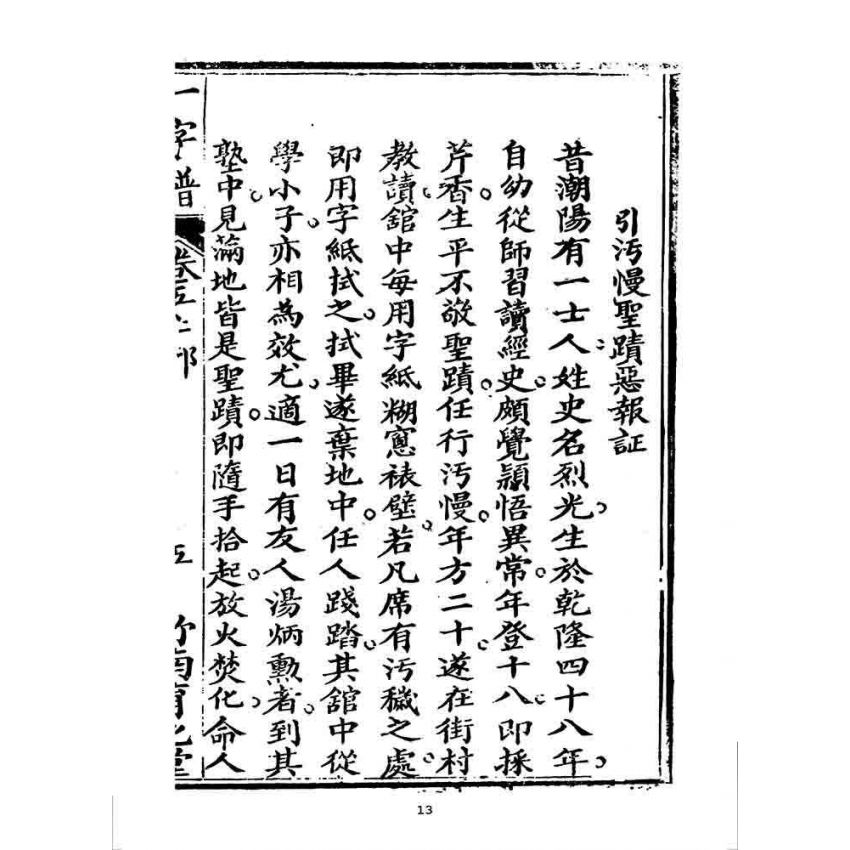 引污慢聖蹟惡報証
昔潮陽有一士人姓史名烈光生於乾隆四十八年
自幼從師習讀經史頗覺頴悟異常年登十八即採
芹香生平不敬聖蹟任行污慢年方二十遂在街村
教讀舘中每用字紙糊窓裱壁若凡席有污穢之處
即用字紙拭之拭畢遂棄地中任人踐踏其舘中從
學小子亦相為效尤適一日有友人湯炳勳者到其
塾中見滿地皆是聖蹟即隨手拾起放火焚化命人
一字譜
卷五上部
五
竹南育化堂
13